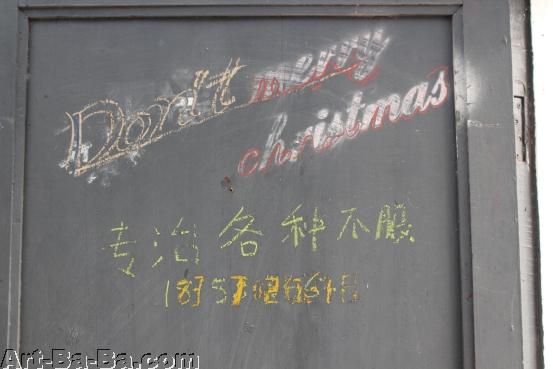 Don't merry
christmas
专治各种不服
Art-Ba-Ba.com